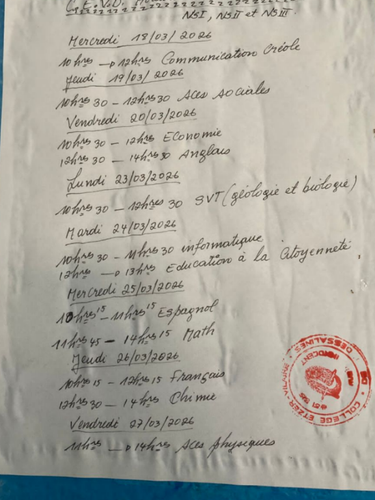 C.E.V.D.
NSI, NSII et NSIII.
Mercredi 18/03/2026
10hres → 12hres Communication Créole
Jeudi 19/03/2026
10hres 30 - 12hres 30 Sces sociales
Vendredi 20/03/2026
10hres 30 - 12hres Economie
12hres 30 - 14hres 30 Anglais
Lundi 23/03/2026
10hres 30 - 12hres 30 SVT (géologie et biologie)
Mardi 24/03/2026
10hres 30 - 11hres 30 informatique
12hres → 13hres Education à la Citoyenneté
Mercredi 25/03/2026
10hres 15 - 11hres 15 Espagnol
11hres 45 - 14hres 15 Math
Jeudi 26/03/2026
10hres 15 - 12hres 15 Français
12hres 30 - 14hres Chimie
Vendredi 27/03/2026
11hres → 14hres Sces physiques
COLLEGE ETZER-VILAIRE
DESSALINES
INNOCENT